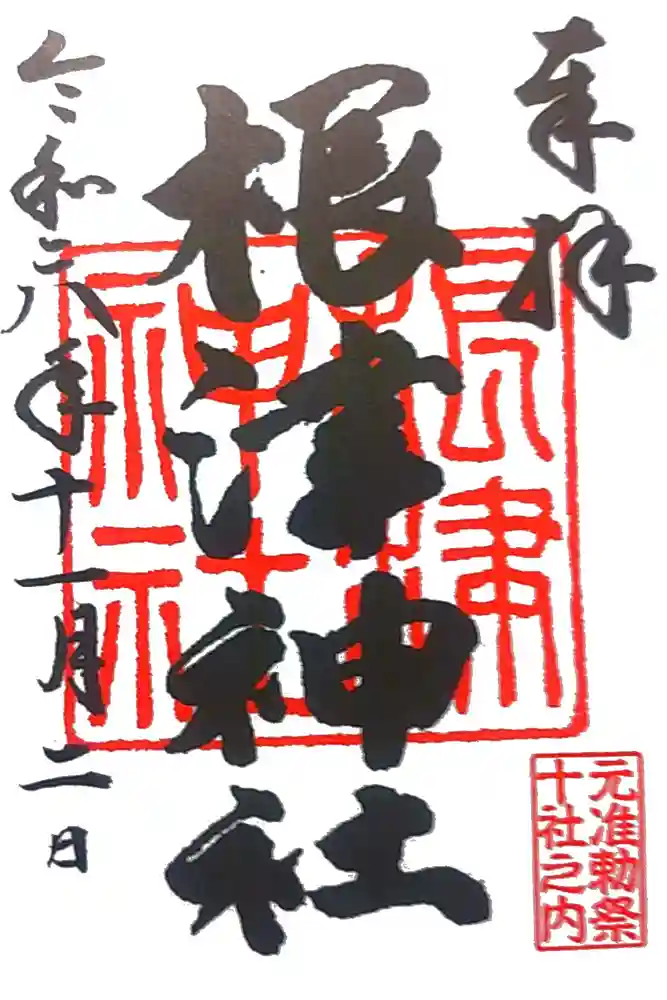 奉拝
根津神社
根津神社
元准勅祭
十社之内
令和六年十一月二日